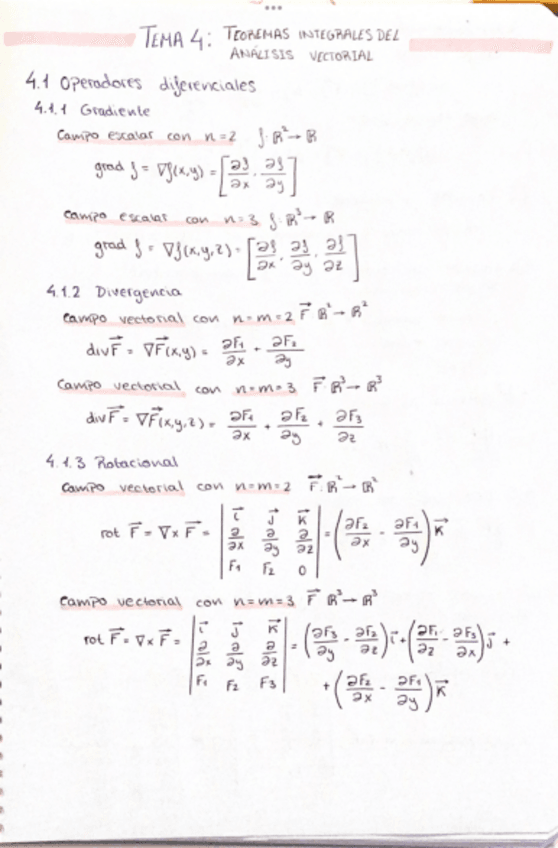 TEMA 4: TEOREMAS INTEGRALES DEL
ANÁLISIS VECTORIAL
4.1 Operadores diferenciales
4.1.1 Gradiente
Campo escalar con n=2 f: ℝ² → ℝ
grad f = ∇f(x,y) = [∂f/∂x, ∂f/∂y]
Campo escalar con n=3 f: ℝ³ → ℝ
grad f = ∇f(x,y,z) = [∂f/∂x, ∂f/∂y, ∂f/∂z]
4.1.2 Divergencia
Campo vectorial con n=m=2 F⃗ ℝ² → ℝ²
div F⃗ = ∇F⃗(x,y) = ∂F₁/∂x + ∂F₂/∂y
Campo vectorial con n=m=3 F⃗: ℝ³ → ℝ³
div F⃗ = ∇F⃗(x,y,z) = ∂F₁/∂x + ∂F₂/∂y + ∂F₃/∂z
4.1.3 Rotacional
Campo vectorial con n=m=2 F⃗: ℝ² → ℝ²
rot F⃗ = ∇x F⃗ = | i⃗ j⃗ k⃗ ; ∂/∂x ∂/∂y ∂/∂z ; F₁ F₂ 0 | = (∂F₂/∂x - ∂F₁/∂y) k⃗
Campo vectorial con n=m=3 F⃗ ℝ³ → ℝ³
rot F⃗ = ∇x F⃗ = | i⃗ j⃗ k⃗ ; ∂/∂x ∂/∂y ∂/∂z ; F₁ F₂ F₃ | = (∂F₃/∂y - ∂F₂/∂z) i⃗ + (∂F₁/∂z - ∂F₃/∂x) j⃗ +
+ (∂F₂/∂x - ∂F₁/∂y) k⃗